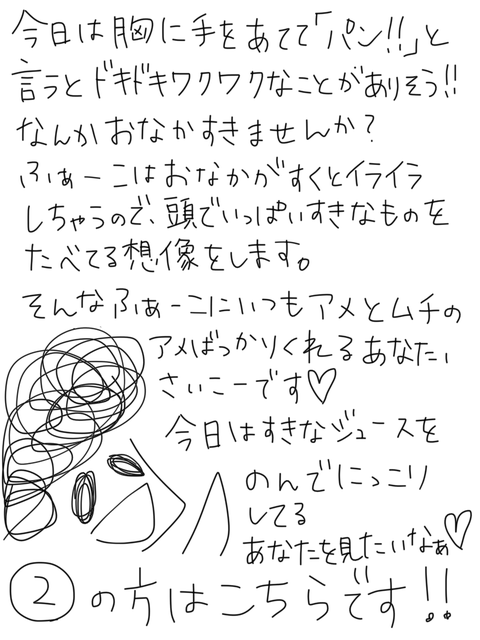 今日は胸に手をあてて「パン!!」と
言うとドキドキワクワクなことがありそう!!
なんかおなかすきませんか?
ふぁーこはおなかがすくとイライラ
しちゃうので、頭でいっぱいすきなものを
たべてる想像をします。
そんなふぁーこにいつもアメとムチの
アメばっかりくれるあなたい
さいこーです♡
今日はすきなジュースを
のんでにっこり
してる
あなたを見たいなぁ♡
②の方はこちらです!!